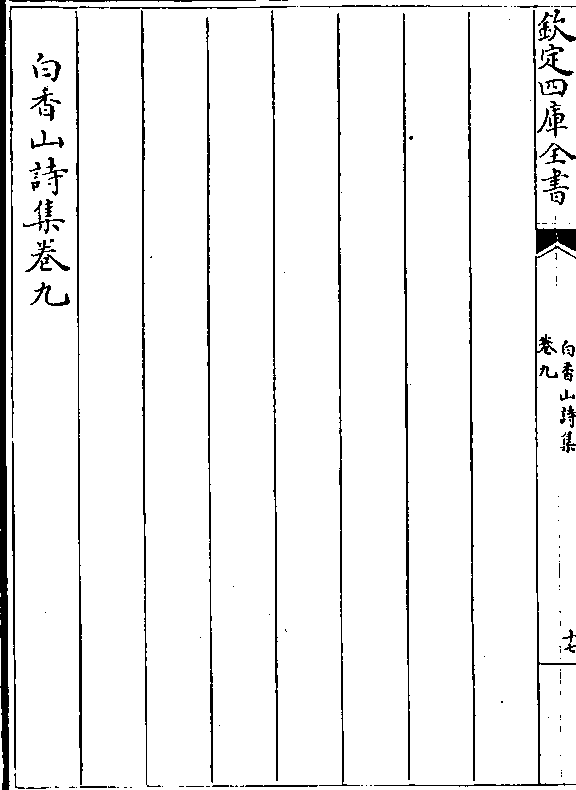 欽定四庫全書
白香山詩集
卷九
十七
白香山詩集卷九